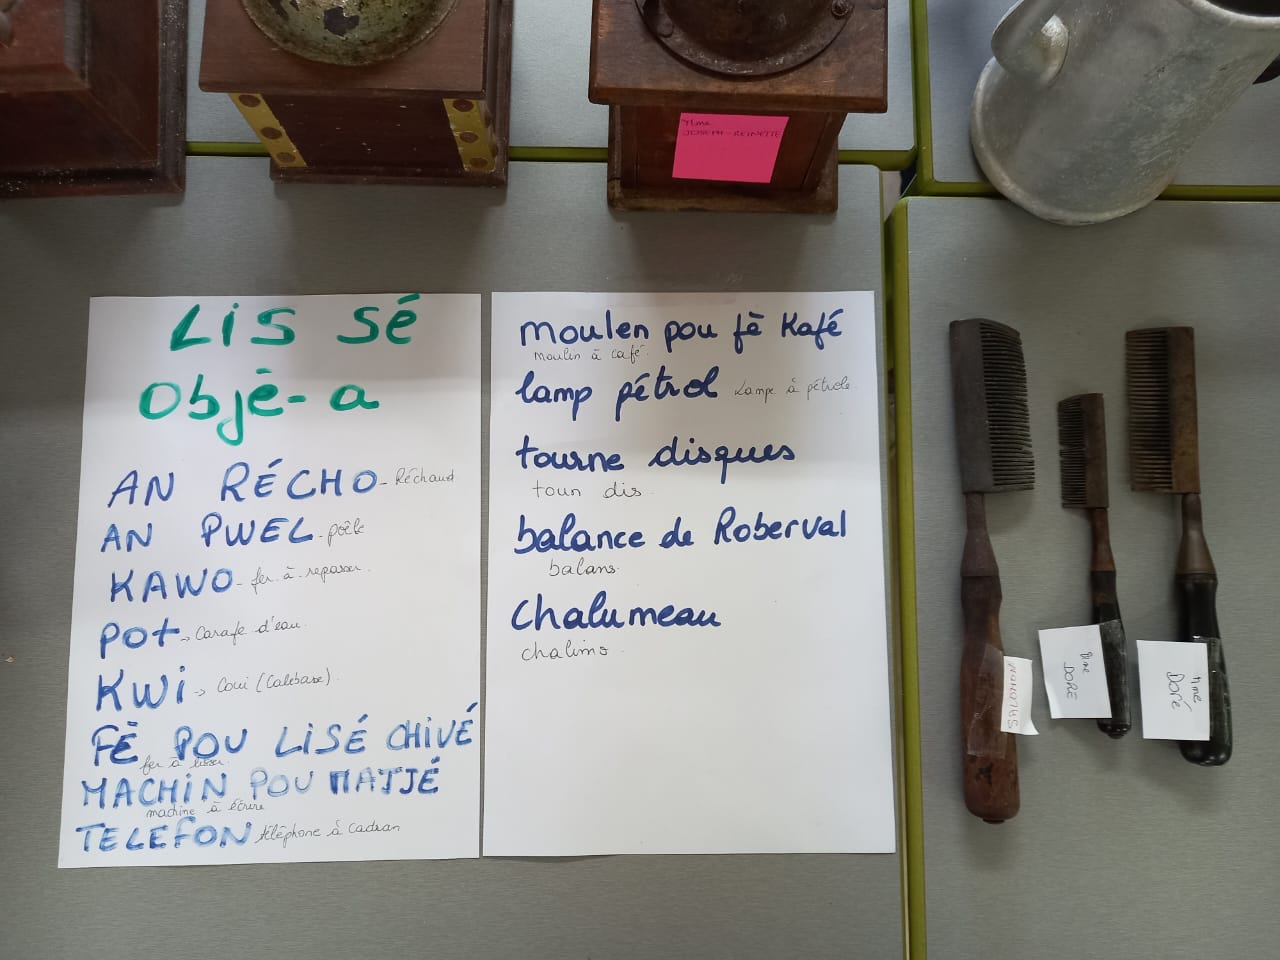 Mme
JOSEPH-REINETTE
Lis sé
Objè-a
AN RÉCHO - Réchaud
AN PWEL - poêle
KAWO - fer à repasser.
Pot -> Carafe d'eau.
KWi -> Coui (Calebasse).
FÈ POU LISÉ CHIVÉ
fer à lisser.
MACHiN POU MATJÉ
machine à écrire
TELEFON téléphone à cadran
moulen pou fè Kafé
moulin à café.
lamp pétrol Lampe à pétrole.
tourne disques
toun dis.
balance de Roberval
balans.
Chalumeau
chalimo.
Mme
DORE
Mme
Doré